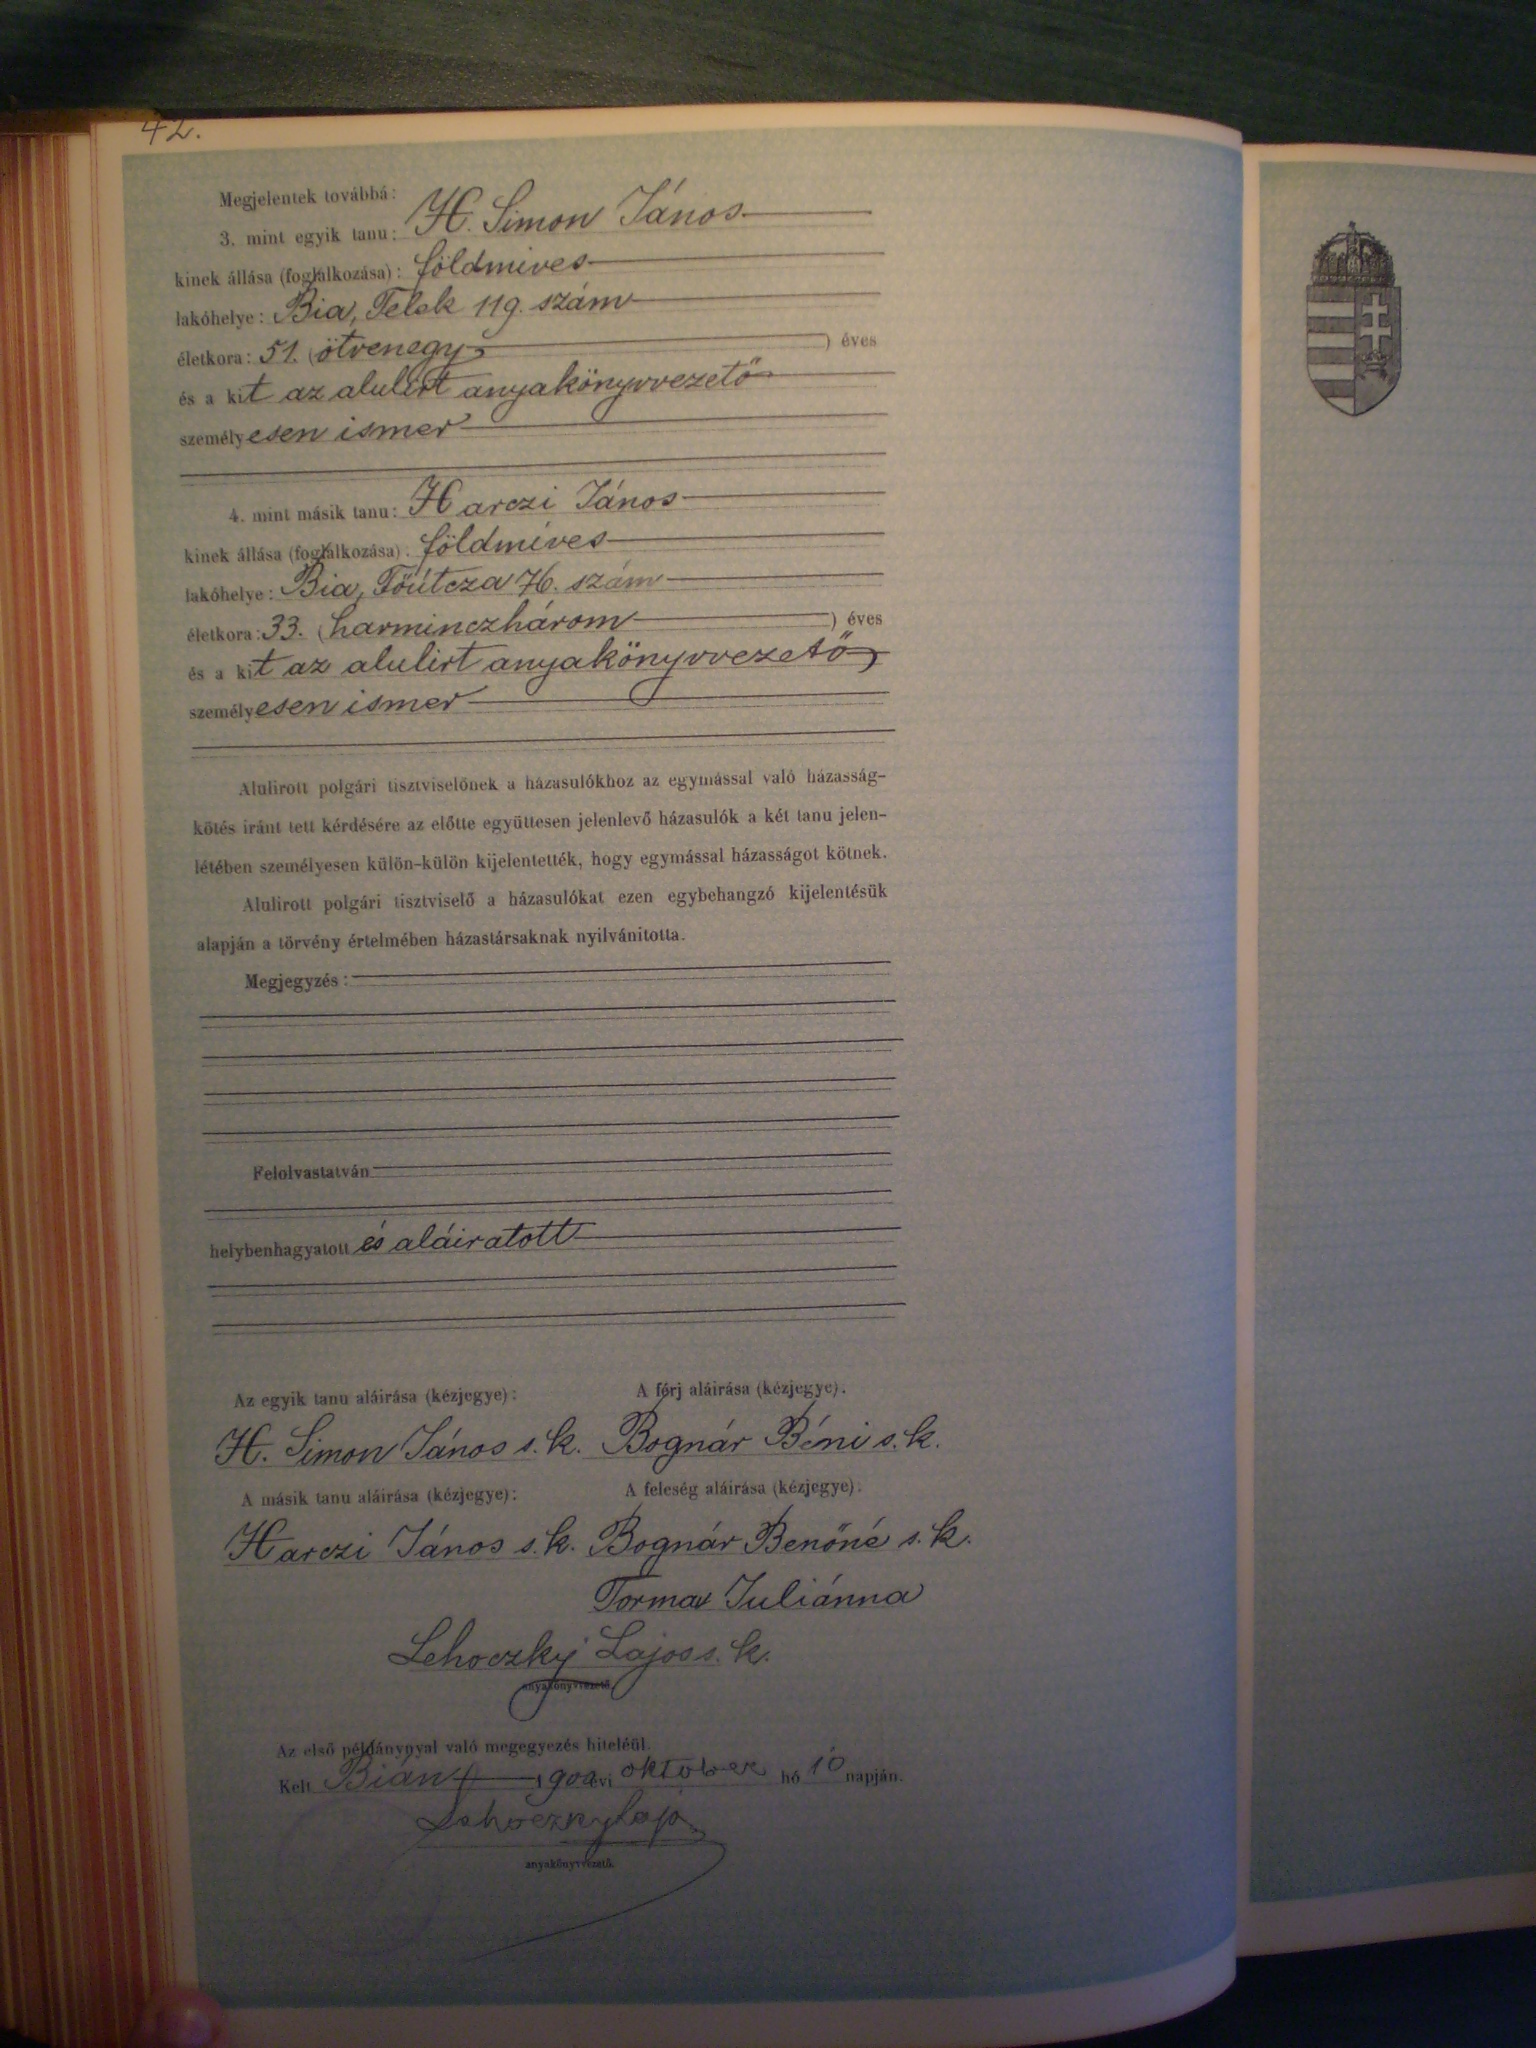 42.
Megjelentek továbbá:
3. mint egyik tanu: H. Simon János
kinek állása (foglalkozása): földmíves
lakóhelye: Bia, Telek 119. szám
életkora: 51. (ötvenegy) éves
és a kit az alulirt anyakönyvvezető
személyesen ismer
4. mint másik tanu: Harczi János
kinek állása (foglalkozása): földmíves
lakóhelye: Bia, Főútcza 76. szám
életkora: 33. (harminczhárom) éves
és a kit az alulirt anyakönyvvezető
személyesen ismer
Alulirott polgári tisztviselőnek a házasulókhoz az egymással való házasság-
kötés iránt tett kérdésére az előtte együttesen jelenlevő házasulók a két tanu jelen-
létében személyesen külön-külön kijelentették, hogy egymással házasságot kötnek.
Alulirott polgári tisztviselő a házasulókat ezen egybehangzó kijelentésük
alapján a törvény értelmében házastársaknak nyilvánitotta.
Megjegyzés:
Felolvastatván
helybenhagyatott és aláiratott
Az egyik tanu aláirása (kézjegye): A férj aláirása (kézjegye).
H. Simon János s. k. Bognár Béni s. k.
A másik tanu aláirása (kézjegye): A feleség aláirása (kézjegye).
Harczi János s. k. Bognár Benőné s. k.
Torma Juliánna
Lehoczky Lajos s. k.
anyakönyvvezető.
Az első példánynyal való megegyezés hiteléül.
Kelt Bián 1900 évi oktober hó 10 napján.
Lehoczky Lajo
anyakönyvvezető.